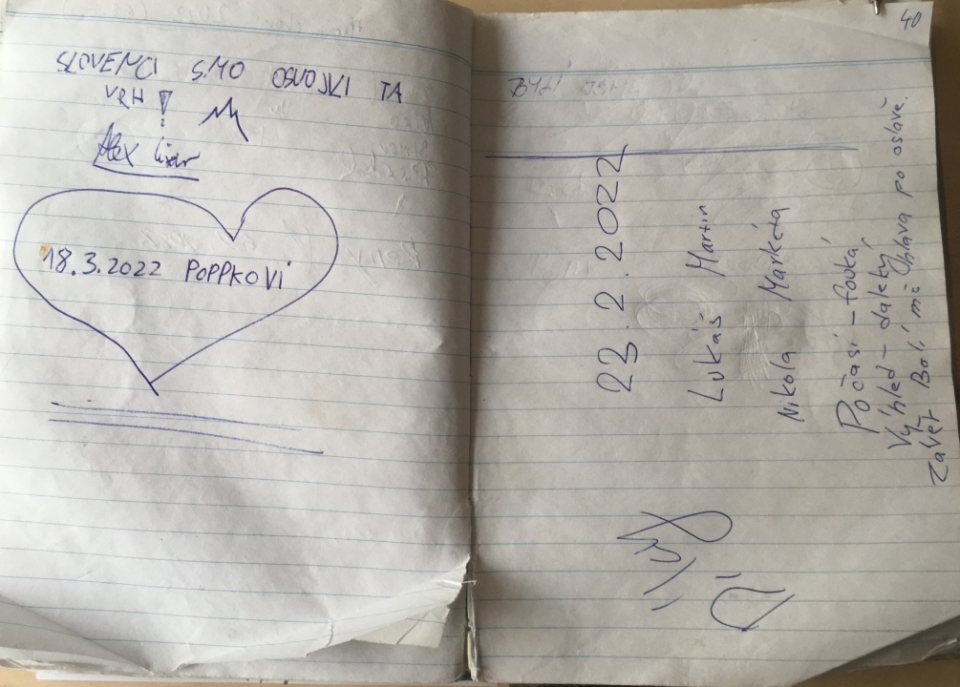 SLOVENCI SMO OSVOJILI TA
VRH!
Alex
18.3.2022 POPPKOVI
40
BYLI JSME
23.2.2022
Lukáš Martin
Nikola Markéta
Počasí - fouká,
Výhled - daleký,
Závěr Bolí mě hlava po oslavě.